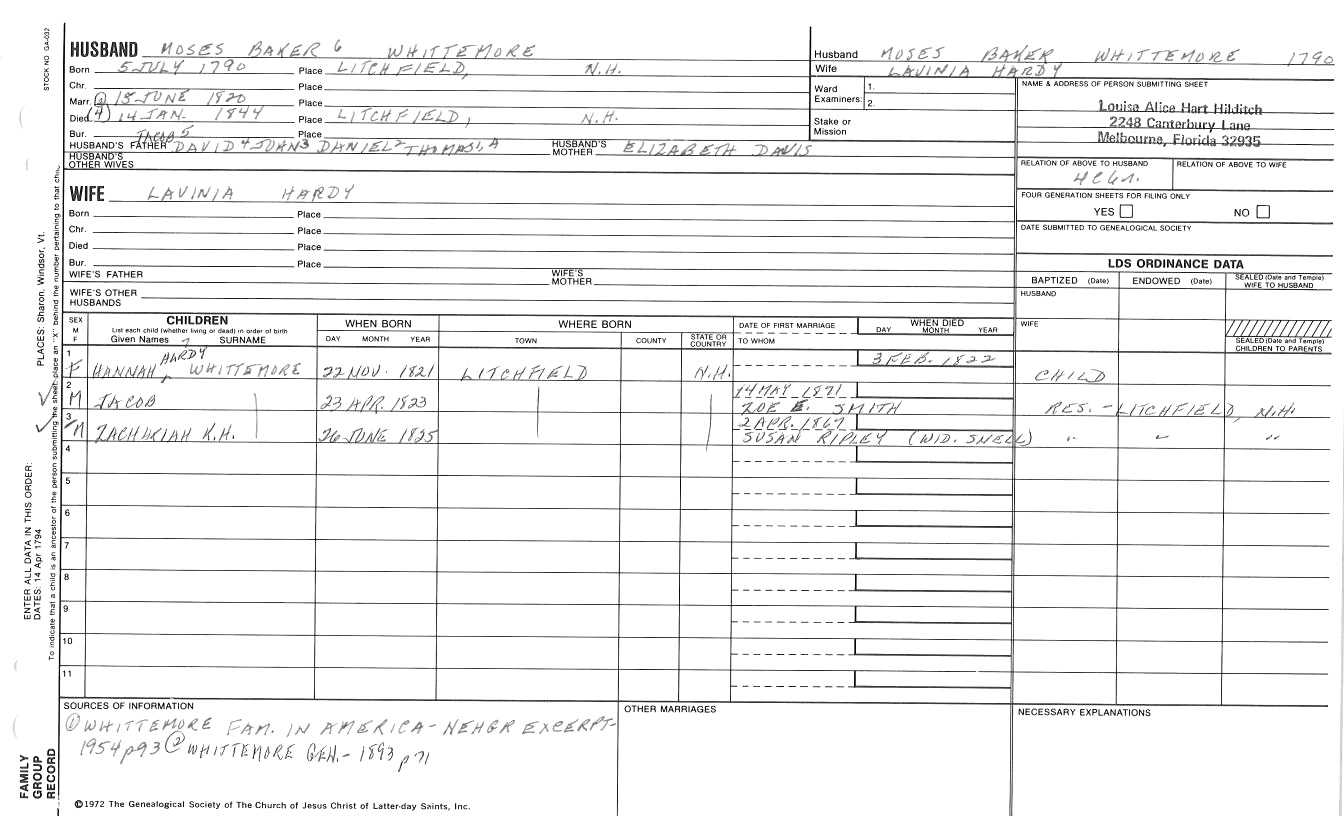 STOCK NO GA-032
HUSBAND MOSES BAKER 6 WHITTEMORE
Born 5 JULY 1790 Place LITCHFIELD, N.H.
Chr. Place
Marr. ② 15 JUNE 1820 Place
Died (4) 14 JAN. 1844 Place LITCHFIELD, N.H.
Bur. Place
JACOB 5
HUSBAND'S FATHER DAVID 4 JOHN 3 DANIEL 2 THOMAS 1, A HUSBAND'S MOTHER ELIZABETH DAVIS
HUSBAND'S OTHER WIVES
WIFE LAVINIA HARDY
Born Place
Chr. Place
Died Place
Bur. Place
WIFE'S FATHER WIFE'S MOTHER
WIFE'S OTHER HUSBANDS
Husband MOSES BAKER WHITTEMORE 1790
Wife LAVINIA HARDY
Ward Examiners: 1. 2.
Stake or Mission
NAME & ADDRESS OF PERSON SUBMITTING SHEET
Louisa Alice Hart Hilditch
2248 Canterbury Lane
Melbourne, Florida 32935
RELATION OF ABOVE TO HUSBAND RELATION OF ABOVE TO WIFE
FOUR GENERATION SHEETS FOR FILING ONLY
YES NO
DATE SUBMITTED TO GENEALOGICAL SOCIETY
LDS ORDINANCE DATA
BAPTIZED (Date) ENDOWED (Date) SEALED (Date and Temple) WIFE TO HUSBAND
HUSBAND
WIFE
SEALED (Date and Temple) CHILDREN TO PARENTS
SEX M F
CHILDREN
List each child (whether living or dead) in order of birth
Given Names SURNAME
WHEN BORN
DAY MONTH YEAR
WHERE BORN
TOWN COUNTY STATE OR COUNTRY
DATE OF FIRST MARRIAGE
TO WHOM
WHEN DIED
DAY MONTH YEAR
1 3 FEB. 1822
HARDY
F HANNAH WHITTEMORE 22 NOV. 1821 LITCHFIELD N.H. CHILD
2 14 MAY 1871
M JACOB 23 APR. 1823 ZOE E. SMITH RES. - LITCHFIELD, N.H.
3 2 APR. 1867
M ZACHARIAH K.H. 26 JUNE 1825 SUSAN RIPLEY (WID. SNELL) " " "
4
5
6
7
8
9
10
11
SOURCES OF INFORMATION
① WHITTEMORE FAM. IN AMERICA - NEHGR EXCERPT-
1954 p93 ② WHITTEMORE GEN. - 1893 p 71
OTHER MARRIAGES
NECESSARY EXPLANATIONS
©1972 The Genealogical Society of The Church of Jesus Christ of Latter-day Saints, Inc.
FAMILY GROUP RECORD
ENTER ALL DATA IN THIS ORDER:
DATES: 14 Apr 1794
PLACES: Sharon, Windsor, Vt.
To indicate that a child is an ancestor of the person submitting the sheet, place an "X" behind the number pertaining to that child.